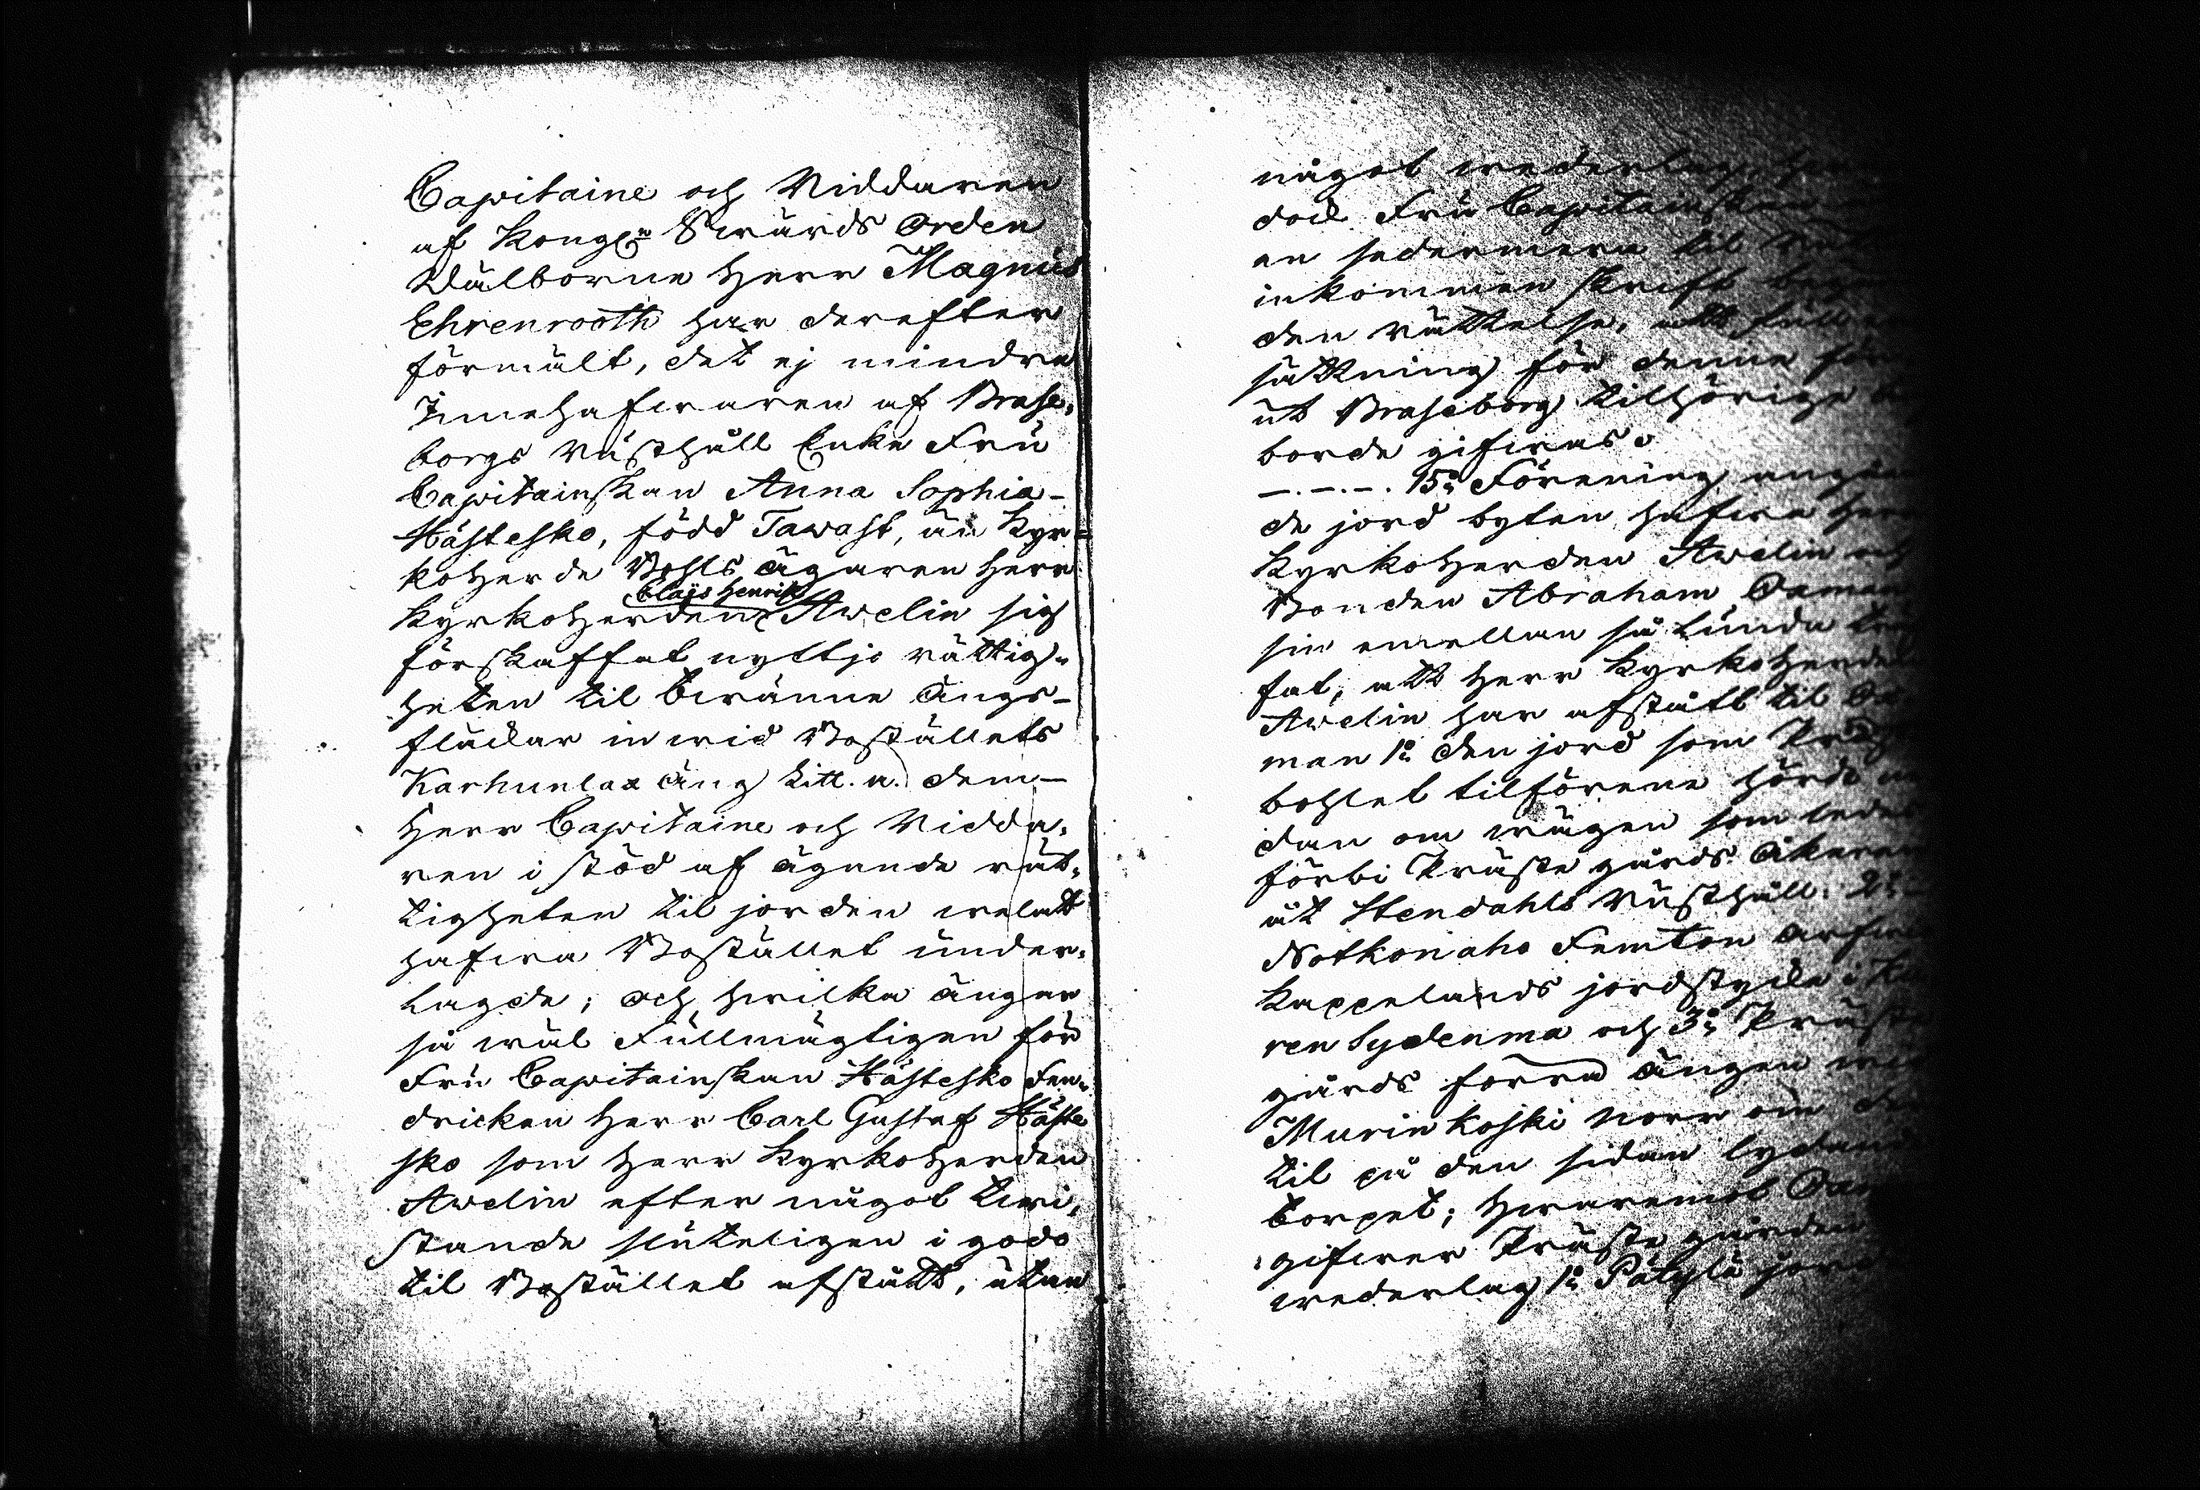 Capitaine och Riddaren
af Kongl:n Swärds Orden
Wälborne Herr Magnus
Ehrenrooth har derefter
förmält, det ej mindre
Innehafwaren af Brase,
borgs Rusthåll Enke Fru
Capitainskan Anna Sophia-
Hästesko, född Tawast, än Kyr=
koherde Bohls ägaren Herr
Kyrkoherden Claijs Henrik Awelin sig
förskaffat nyttjo rättig-
heten til twänne ängs-
fläckar in wid Boställets
Karhunlax äng Litt. a. dem-
Herr Capitaine och Ridda,
ren i stöd af ägande rät,
tigheten til jorden welat
hafwa Bostället under,
lagde; och hwilka ängar
så wäl Fullmägtigen för
Fru Capitainskan Hästesko Fen,
dricken Herr Carl Gustaf Häste
sko som Herr Kyrkoherden
Awelin efter något twi,
stande sluteligen i godo
til Bostället afstått, utan
något wederlag,
dock Fru Capitainskan
en sedermera til
inkommen skrift
den rättelse, att full
sättning för denne
ut Braseborg tilhörige
borde gifwas.
-.-.-. 15:o Förening angåen
de jord byten hafwa Herr
Kyrkoherden Awelin och
Bonden Abraham Oaman
sin emellan så lunda
fat, att Herr Kyrkoherden
Awelin har afstått til Oa
man 1:o den jord som Präst
bohlet tilförene hördt
dan om wägen som leder
förbi Präste gårds åkeren
åt Stendahls Rusthåll: 2:o
Notkonaho Femton
Kappelands jordstycke i
ren Sydenma och 3:o Präste
gårds forra ängen
Murinkoski norr om
til på den sidan lydande
torpet; hwaremot Oa
gifwer Präste gården
wederlag 1:o jord